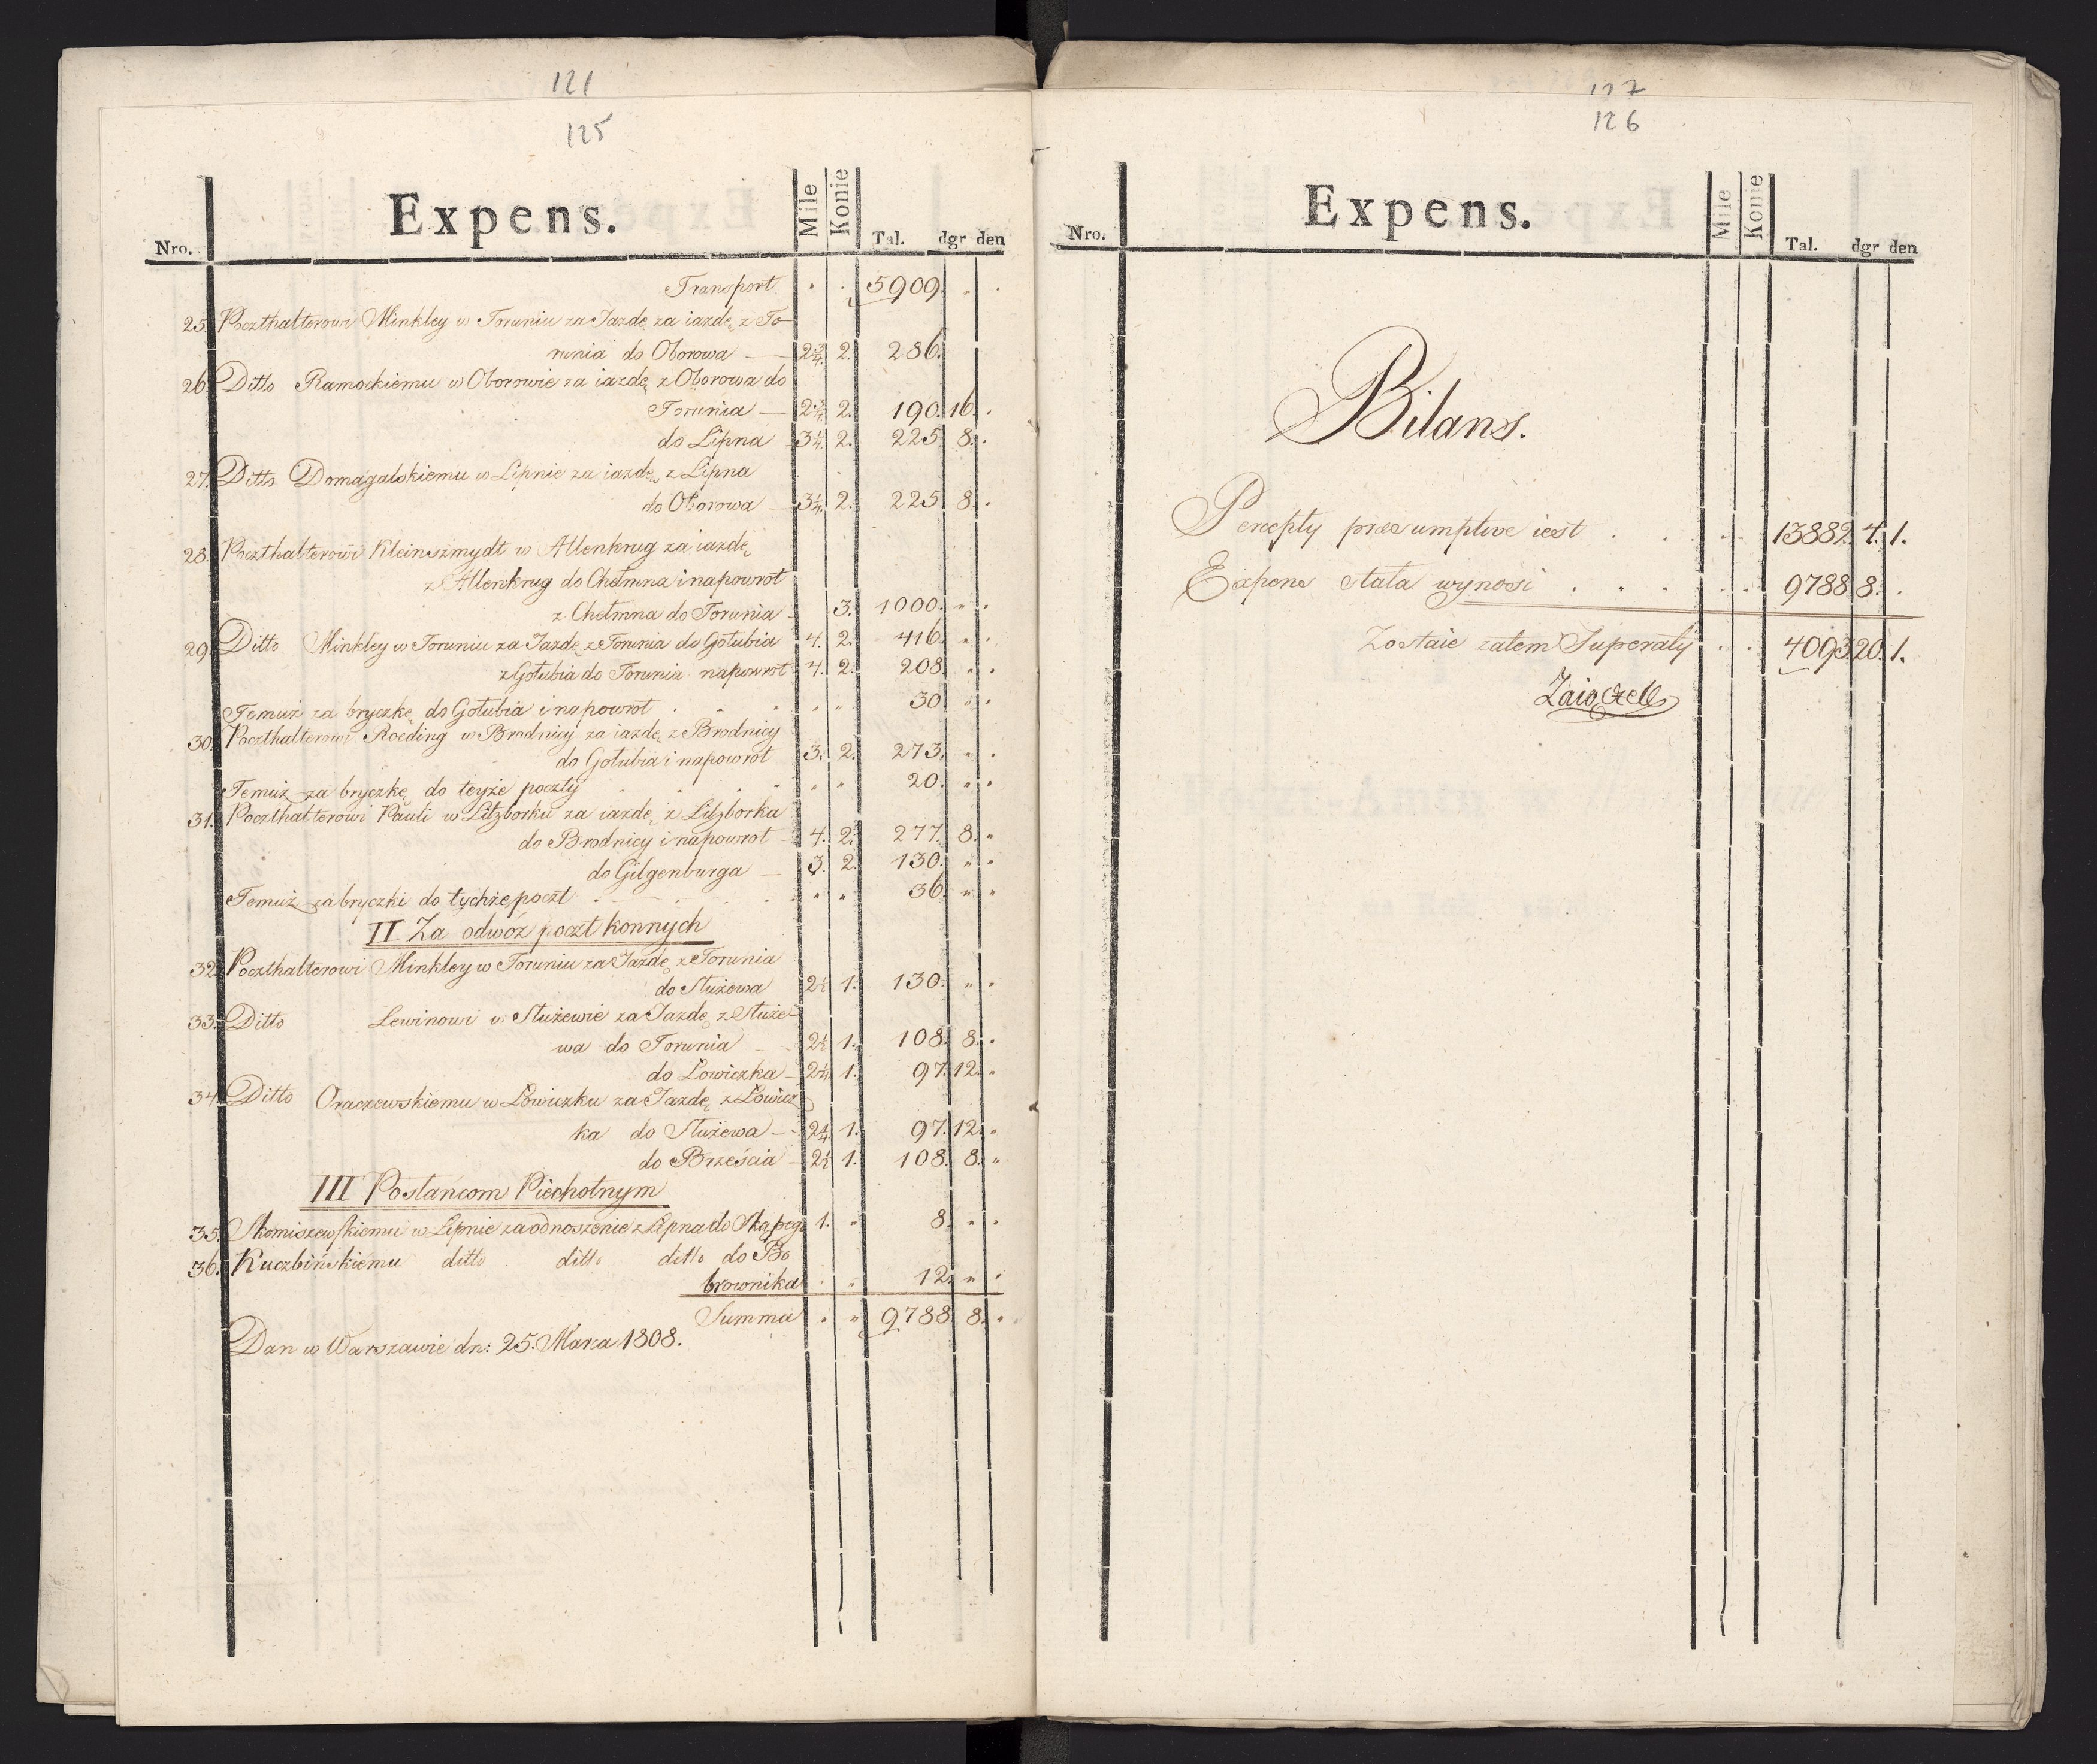 121
125
Expens.
Nro. Mile Konie Tal. dgr den
Transport. 5909.
25. Poczthalterowi Minkley w Toruniu za Jazdę za iazdę z To-
runia do Oborowa — 2¾ 2. 286.
26. Ditto Ramockiemu w Oborowie za iazdę z Oborowa do
Torunia — 2¾ 2. 190. 16.
do Lipna 3¼ 2. 225. 8.
27. Ditto Domagalskiemu w Lipnie za iazdę z Lipna
do Oborowa — 3¼ 2. 225. 8.
28. Poczthalterowi Kleinszmydt w Altenkrug za iazdę
z Altenkrug do Chełmna i napowrot
z Chełmna do Torunia 3. 1000. " "
29. Ditto Minkley w Toruniu za Jazdę z Torunia do Gołubia 4. 2. 416. " "
z Gołubia do Torunia napowrot 4. 2. 208. " "
Temuż za bryczkę do Gołubia i napowrot 30. " "
30. Poczthalterowi Roeding w Brodnicy za iazdę z Brodnicy
do Gołubia i napowrot 3. 2. 273. " "
Temuż za bryczkę do teyże poczty 20. " "
31. Poczthalterowi Pauli w Litzborku za iazdę z Litzborka
do Brodnicy i napowrot 4. 2. 277. 8. "
do Gilgenburga — 3. 2. 130. " "
Temuż za bryczki do tychże poczt 36. " "
II Za odwóz poczt konnych
32. Poczthalterowi Minkley w Toruniu za Jazdę z Torunia
do Służewa 2½ 1. 130. " "
33. Ditto Lewinowi w Służewie za Jazdę z Służe-
wa do Torunia 2½ 1. 108. 8.
do Lowiczka — 2¼ 1. 97. 12. "
34. Ditto Oraczewskiemu w Łowiczku za Jazdę z Łowicz
ka do Służewa — 2¼ 1. 97. 12. "
do Brześcia — 2½ 1. 108. 8. "
III Posłańcom Piechotnym
35. Skomiszewskiemu w Lipnie za odnoszenie z Lipna do Skapego 1. " 8. " "
36. Kuczbińskiemu ditto ditto ditto do Bo
brownika 12. " "
Summa " " 9788. 8. "
Dan w Warszawie dn: 25. Marca 1808.
126
Expens.
Nro. Mile Konie Tal. dgr den
Bilans.
Percepty praesumptive iest 13882. 4. 1.
Expens stała wynosi 9788. 8.
Zostaie zatem Superaty 4093. 20. 1.
Zaiączek